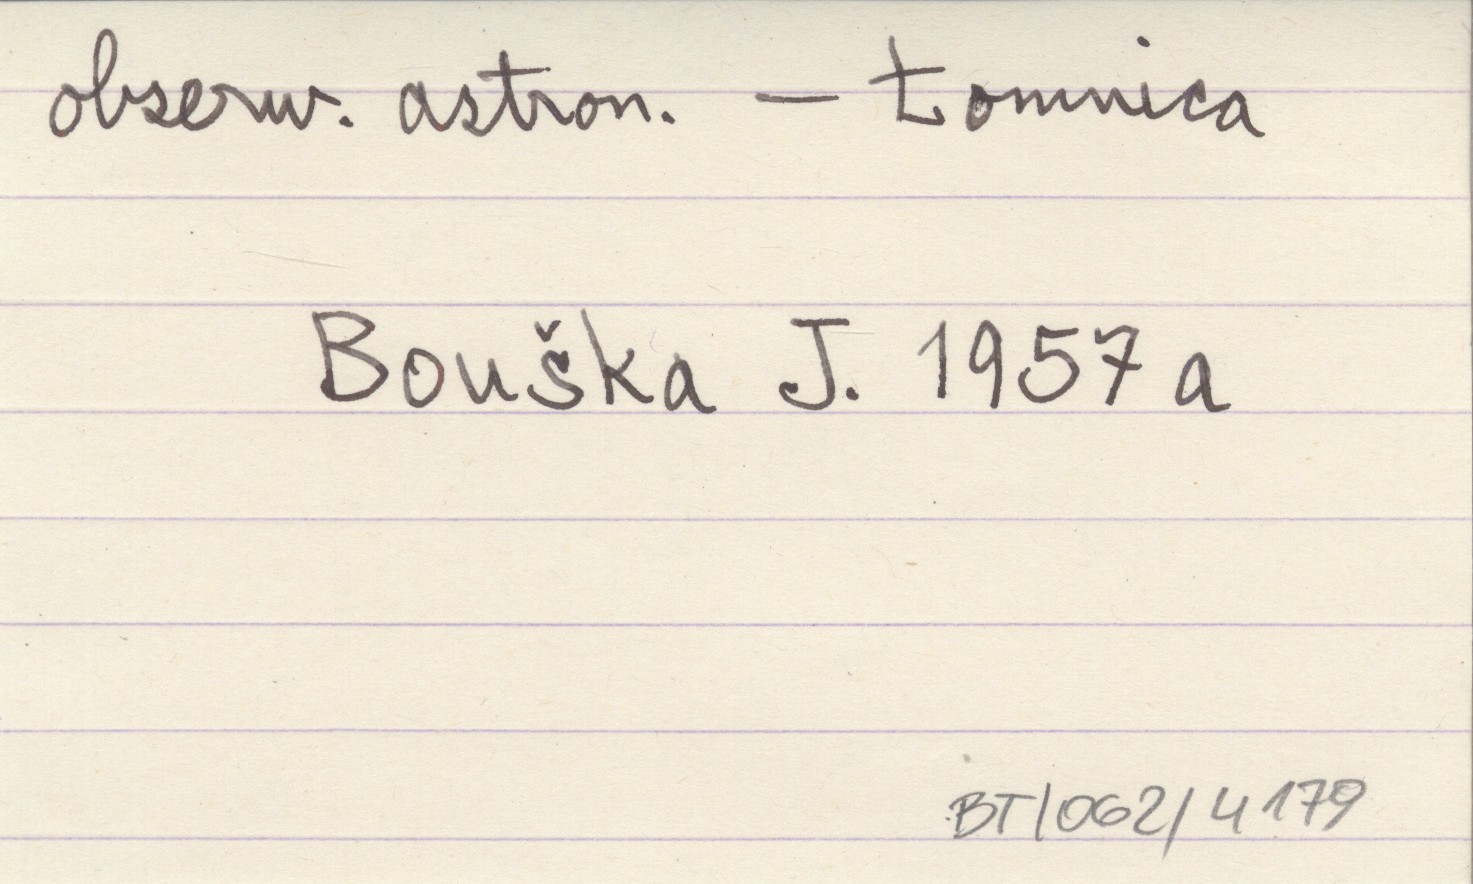 obserw. astron. – Łomnica
Bouška J. 1957a
BT/062/4179